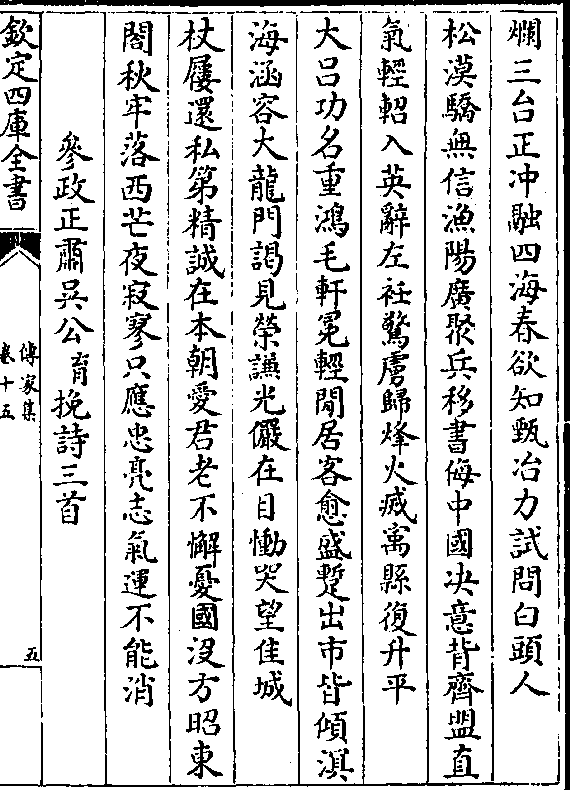 爛三台正冲融四海春欲知甄冶力試問白頭人
松漠驕無信漁陽廣聚兵移書侮中國决意背齊盟直
氣輕軺入英辭左衽驚虜歸烽火滅寓縣復升平
大吕功名重鴻毛軒冕輕閒居客愈盛蹔出市皆傾溟
海涵容大龍門謁見榮謙光儼在目慟哭望佳城
杖屨還私第精誠在本朝愛君老不懈憂國没方昭東
閤秋牢落西芒夜寂寥只應忠亮志氣運不能消
參政正肅吳公育挽詩三首
欽定四庫全書
傳家集
卷十五
五